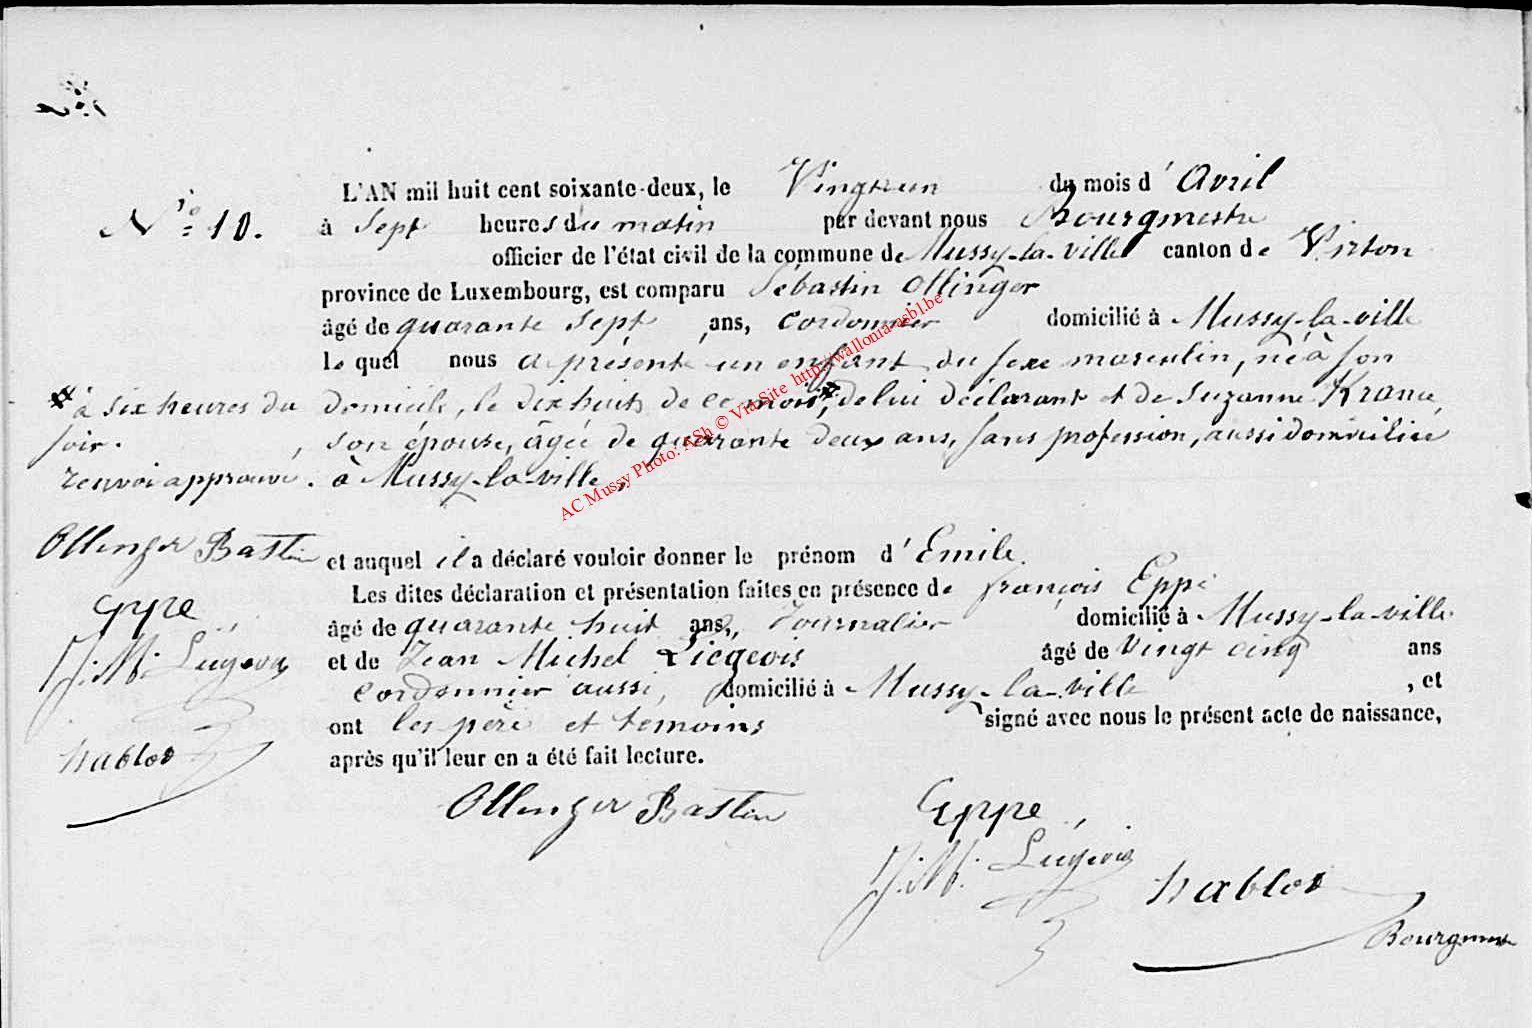 L'AN mil huit cent soixante-deux, le Vingt un du mois d'Avril
N° 10. à Sept heures du matin par devant nous Bourgmestre
officier de l'état civil de la commune de Mussy-la-ville canton de Virton
province de Luxembourg, est comparu Sébastin Ollinger
âgé de quarante Sept ans, Cordonnier domicilié à Mussy-la-ville
le quel nous a présenté un enfant du sexe masculin, né à son
domicile, le dix huit de ce mois, de lui déclarant et de Suzanne Krane,
son épouse, âgée de quarante deux ans, sans profession, aussi domiciliée
à Mussy-la-ville,
à six heures du
soir.
renvoi approuvé.
Ollinger Bastin
Eppe
J. M. Liégeois
hablot
et auquel il a déclaré vouloir donner le prénom d'Emile
Les dites déclaration et présentation faites en présence de françois Eppe
âgé de quarante huit ans, Journalier domicilié à Mussy-la-ville
et de Jean Michel Liégeois âgé de Vingt cinq ans
cordonnier aussi, domicilié à Mussy-la-ville, et
ont les père et temoins signé avec nous le présent acte de naissance,
après qu'il leur en a été fait lecture.
Ollinger Bastin
Eppe
J. M. Liégeois
hablot
Bourgmestre
AC Mussy Photo: ASh © Via Site http://wallonia-asbl.be